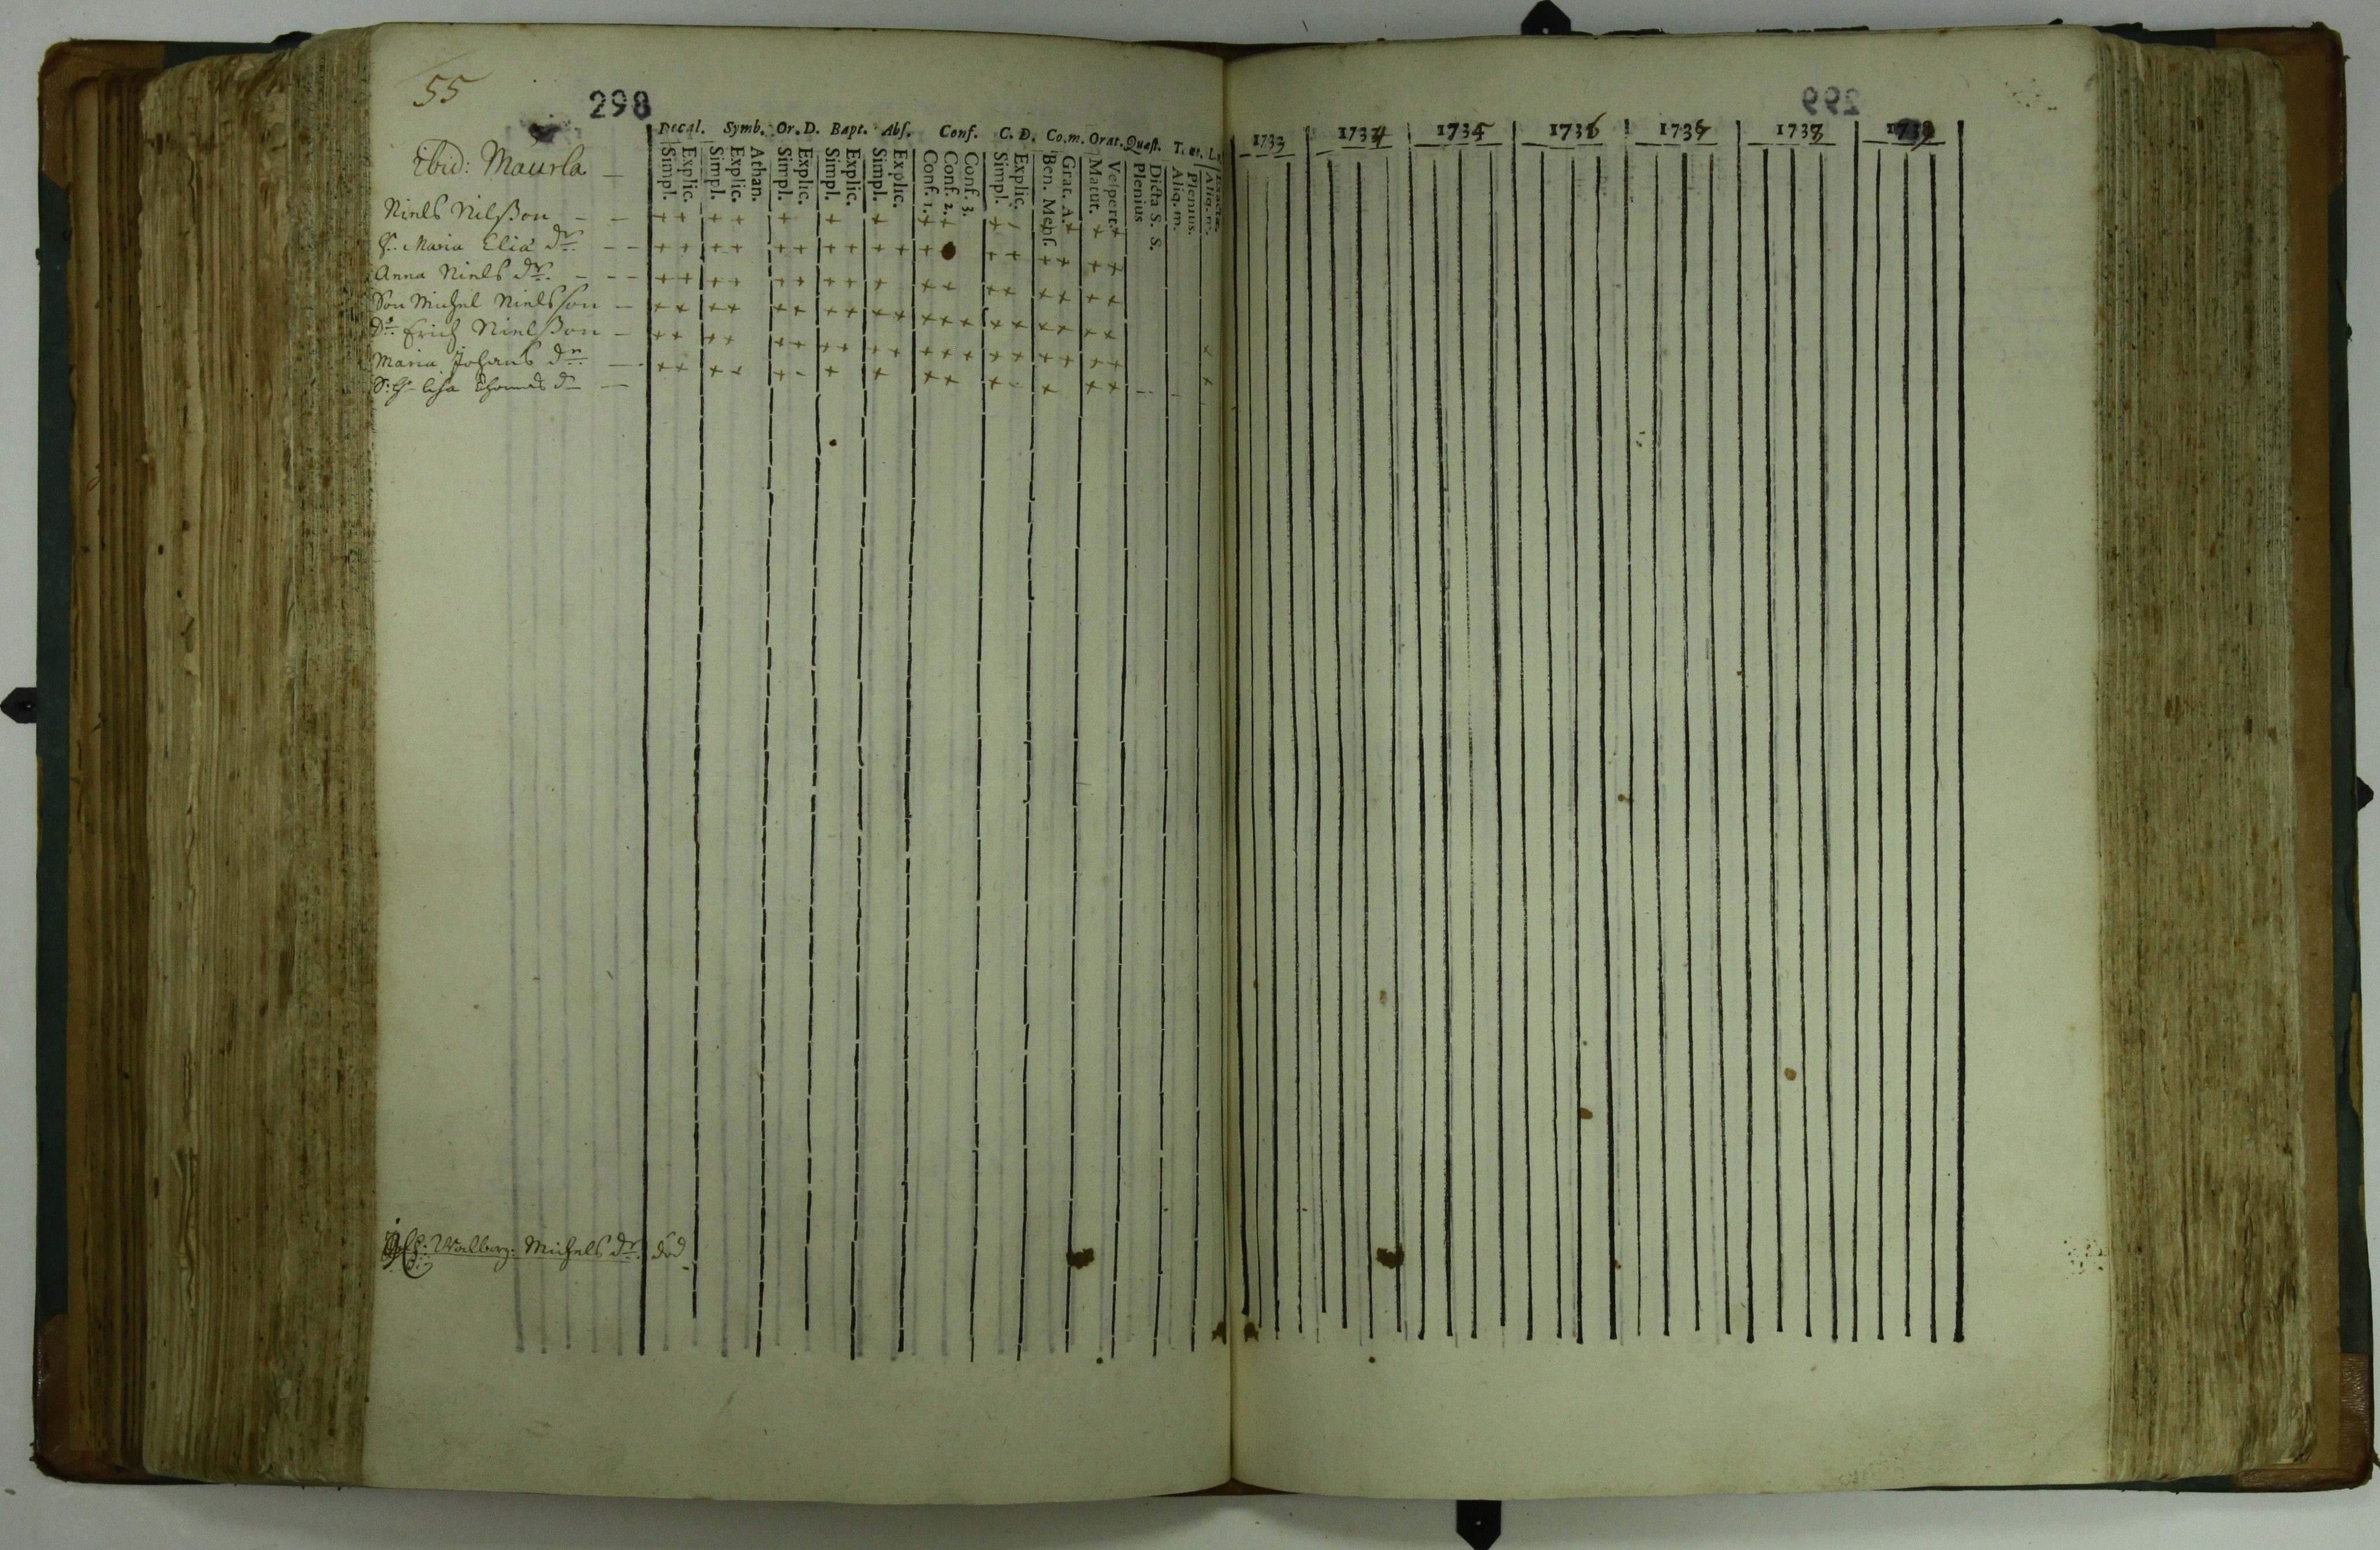 55
298
299
Decal. Symb. Or. D. Bapt. Abs. Conf. C. D. Co.m. Orat. Quæst.
Simpl. Explic. Simpl. Explic. Athan. Simpl. Explic. Simpl. Explic. Simpl. Explic. Conf. 1. Conf. 2. Conf. 3. Simpl. Explic. Ben. Mens. Grat. A. Matut. Vespert. Plenius Dicta S. S. Aliq. m. Plenius. Aliq. m.
1733 1734 1735 1736 1737 1738
Ibid: Maurla
Niels Nilsson
H. Maria Elia dr
Anna Niels dr
Son Michel Nielsson
Do Erich Nielsson
Maria Johans dr
S: H Lisa Thomas dr
H: Walborg: Michels dr död